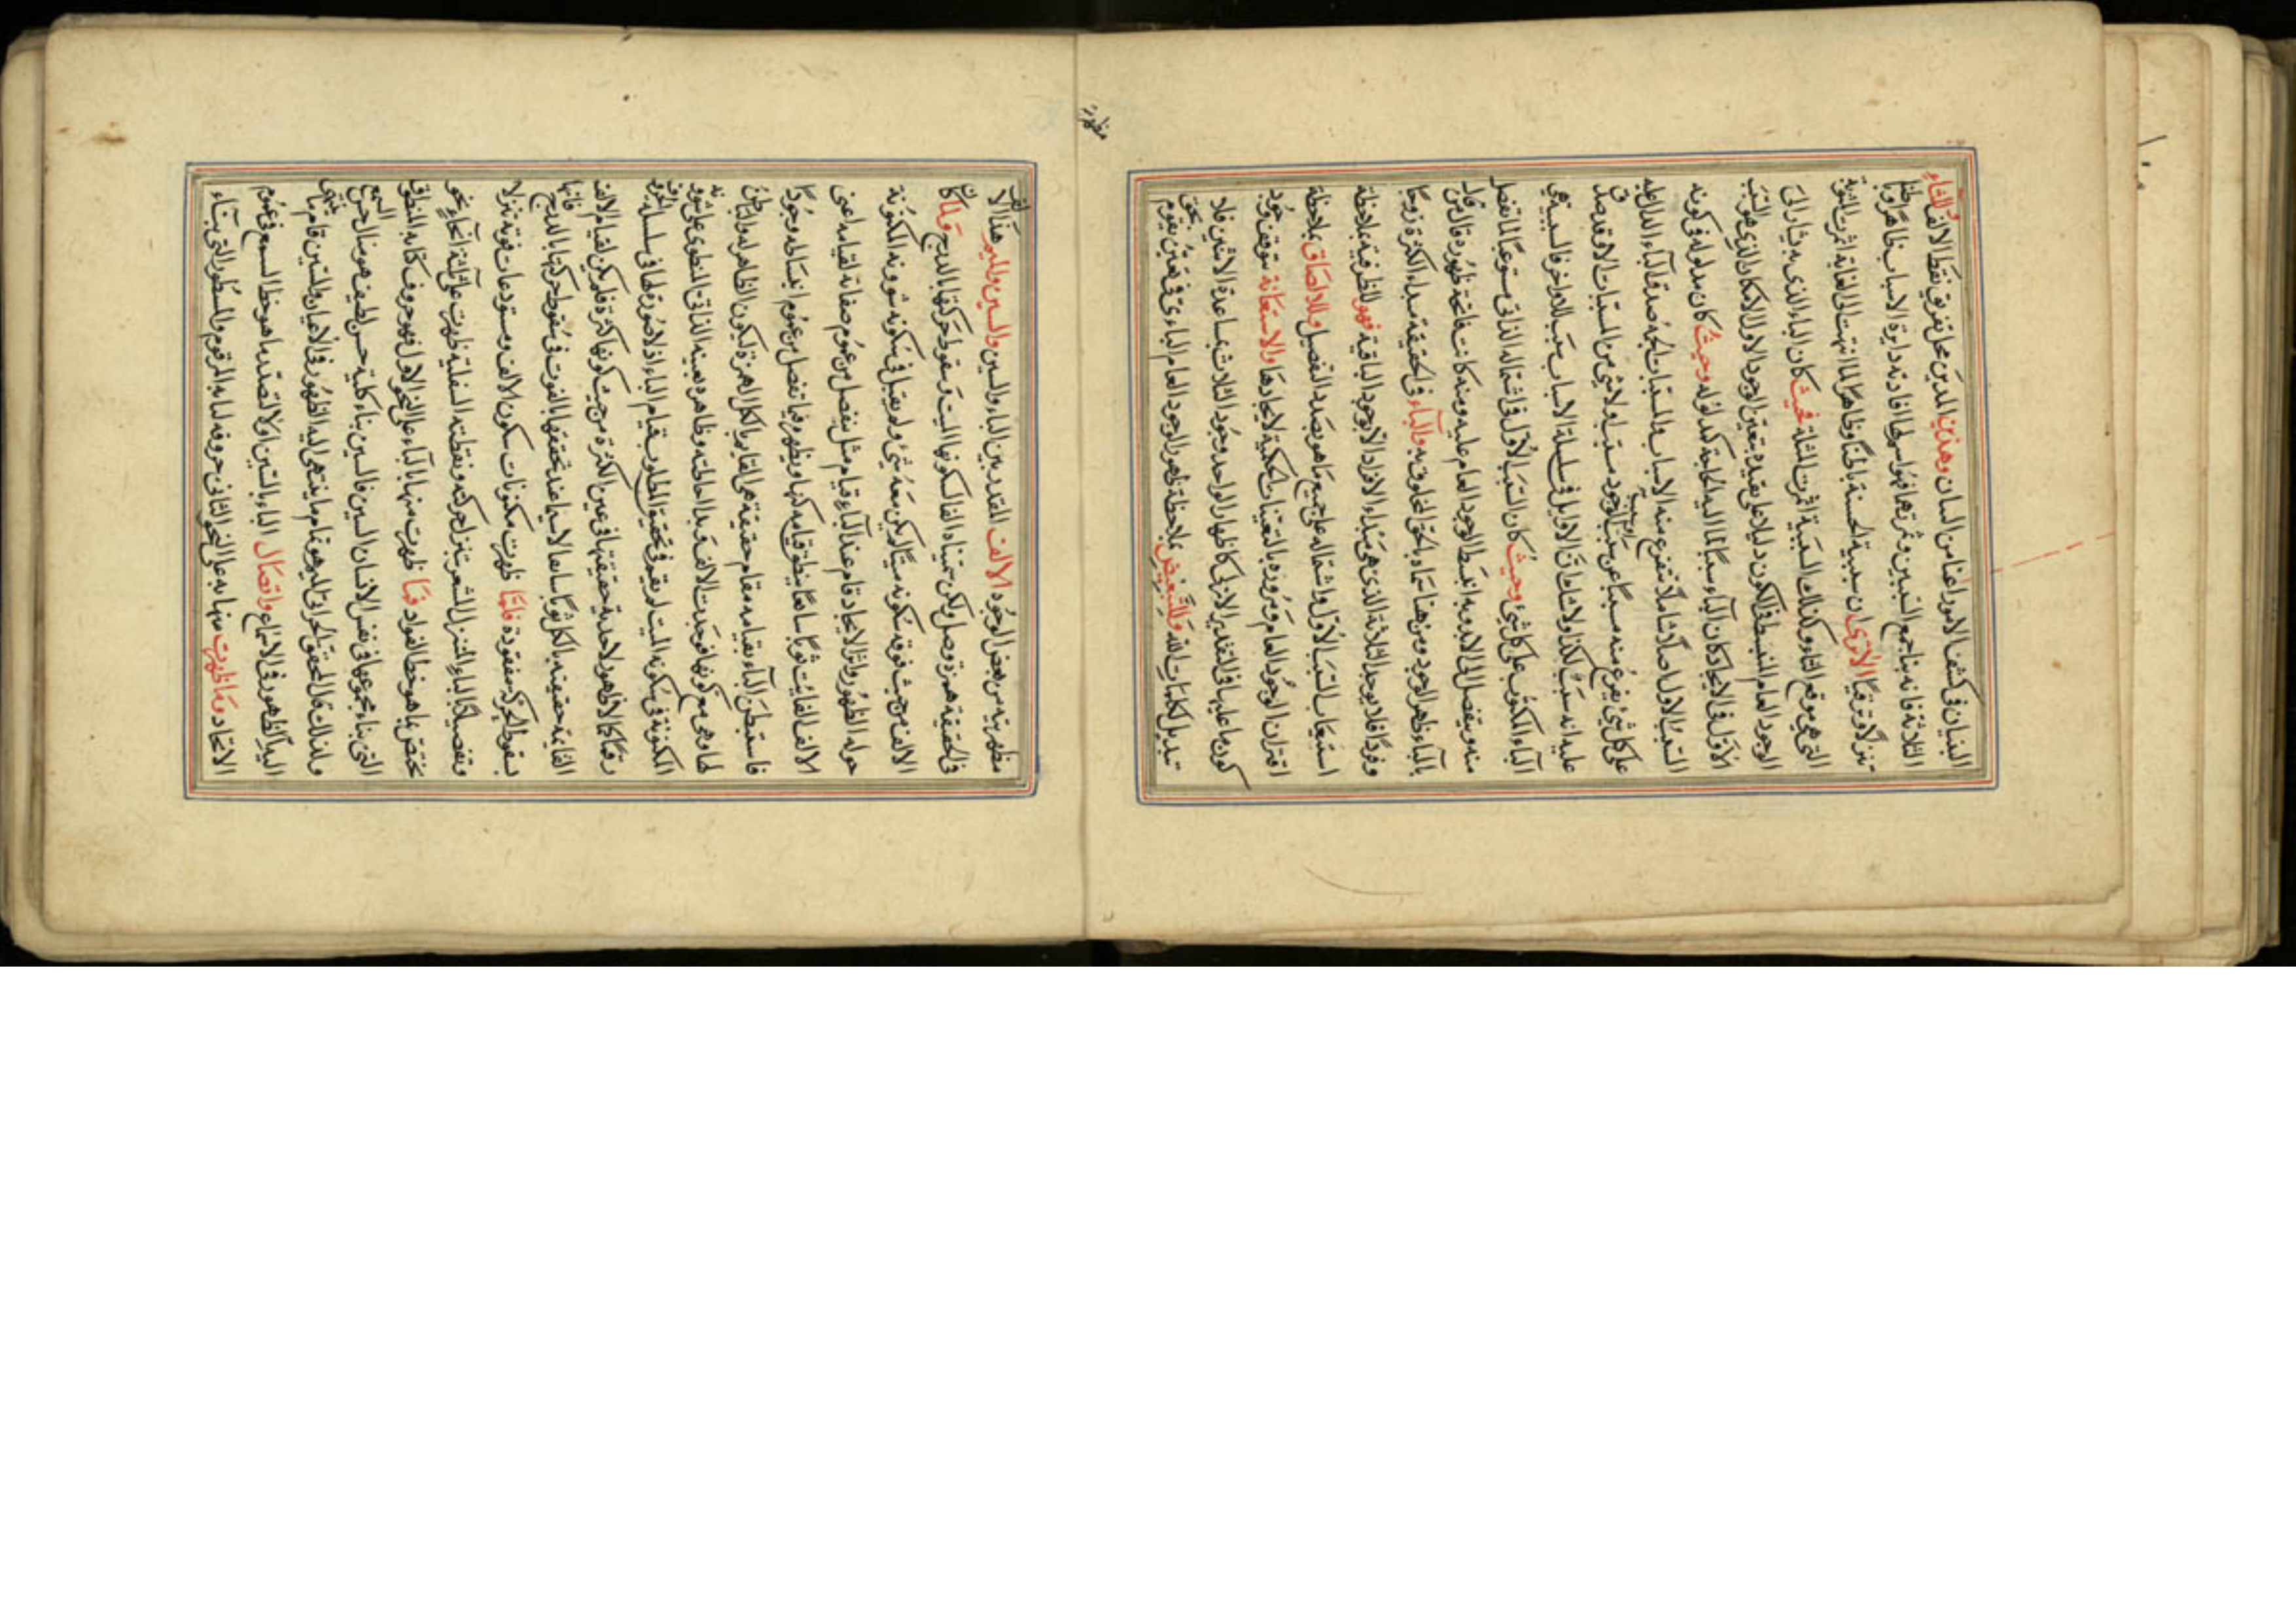 البنيان في كشف الامور اعنا من البيان وهذين الذين محل تفريق نقط الالف الثاء
الثلاثة فانه بناء جمع السببين وثمرتهما فهو اسم لها افادته دايرة الاسباب ظاهرا وباطنا
تنزلا وترقيا الا ترى ان سببية الحسنة باطنا وظاهرا لما انتهت الى الغاية اثمرت المثوبة
التي هي موقع الثاء وكذلك السببية اثمرت المثلة فحيث كان الباء الذي به يشار الى
الوجود العام المنبسط في الكون دليلا على تقيده بتعين الوجود الاول الامكان الذي هو السبب
الاول في الايجاد كان الباء سببا لما اليه الحاجة كمدلوله وحيث كان مدلوله في كونه
السبب الاول اصلا شاملا تتفرع منه الاسباب والمسببات الجمة صدق الباء الدال عليه
على كل شئ يفرع منه مسببا عن سبب لوجود مسبب ولا شئ من المسببات الا وقد صدق
عليه انه سبب لكذا ولا شك ان الاوايل في سلسلة الاسباب سبب للاواخر فالسببية هي
الباء المكتوب على كل شئ وحيث كان السبب الاول في اشتماله الذاتي مستوعبا لما تفصل
منه ويتفصل الى الابد وبه انبسط الوجود العام عليه ومنه كانت فاتحة ظهوره قال من قال
بالباء ظهر الوجود ومن هنا سماه بالحق المخلوق به والباء في الحقيقة مبدا الكثرة زوجا
وفردا فلا يوجد الثلاثة الذي هو مبدا الافراد الا بوجود الباقية فهو للظرفية بملاحظة
استيعاب السبب الاول واشتماله على جميع ما هو بصدد التفصيل وللالصاق بملاحظة
اقتران الوجود العام ومروره بالتعينات الحكمية لايجادها والاستعانة بتوقف وجود
كون ما عليها في التقدير الازلي كاظهار الواحد وجود الثلاث بمساعدة الاثنين فلا
تبديل لكلمات الله وللتبعيض بملاحظة ظهور الوجود العام الباءي في تعين يقوم بحق
مظهرية
مظهريته من بعض الوجود الالف المقدر بين الباء والسين والسين والميم هذا الالف
في الحقيقة همزة وصل ولكن سميناه الفا لسكونها الميت وسقوط حركتها بالدرج ولما كان
الالف من حيث فوقه سكونه ميتا لم يكن معه شئ ولم يقبل في سكونه شوونه المكنونة
حوله الظهور واثر الايجاد قام عند الباء قيام مثل ينفصل من عموم صفاته لقيامه اعني
الالف الفايت ثوبا سابغا ينطق قيامه كنها ويظهر فيما تفصل من عموم انبساطه وجودا
فاستبطن الباء بقيامه مقام حقيقة هي القايم بالكل الهمزة ليكون الظاهر له والباطن
لها وهي مع كونها فوجدت الالف مبدا احاطته وظاهره بعينه الذاتي المنطوي على شوونه
المكنونة في سكونه الميت لم يقم في تحقيق المطلوب بقيام الباء اذ لا صورة لها في سلسلة الحروف
رقما كما لا ظهور لاحدية حقيقتها في عين الكثرة من حيث كونها كثرة فلم يكن لقيام الالف
القايمة حقيقته بالكل ثوبا سابغا لا سيما عند تحققها بالفوت في سقوط حركتها بالدرج فانها
بسقوط الحركة مفقودة فلما ظهرت مكنونات سكون الالف ومستودعات قوته تنزلا
وتفصيلا بالباء المتنزل المشعر بتنزل حركته ونقطته السفلية ظهرت على ثلثة انحاء نحو
يختص بما هو حظ الفواد فما ظهرت منها بالباء على النحو الاول فهو حروف كتابه المنطاق
التي بناء مجموعها في نفس الانسان السين فالسين بناء كلية حسن لطيف هو منال حسن السمع
ولذلك قال المحقق الحرالي الميم هو تمام ما ينتهي اليه الظهور في الاعيان والسين قام ما ينتهي
اليه الظهور في الاسماع واتصال الباء بالسين اولا لتصدير ما هو حظ السمع في عموم
الايجاد وما ظهرت منها به على النحو الثاني حروف كتابه المرقوم والمسطور التي بناء